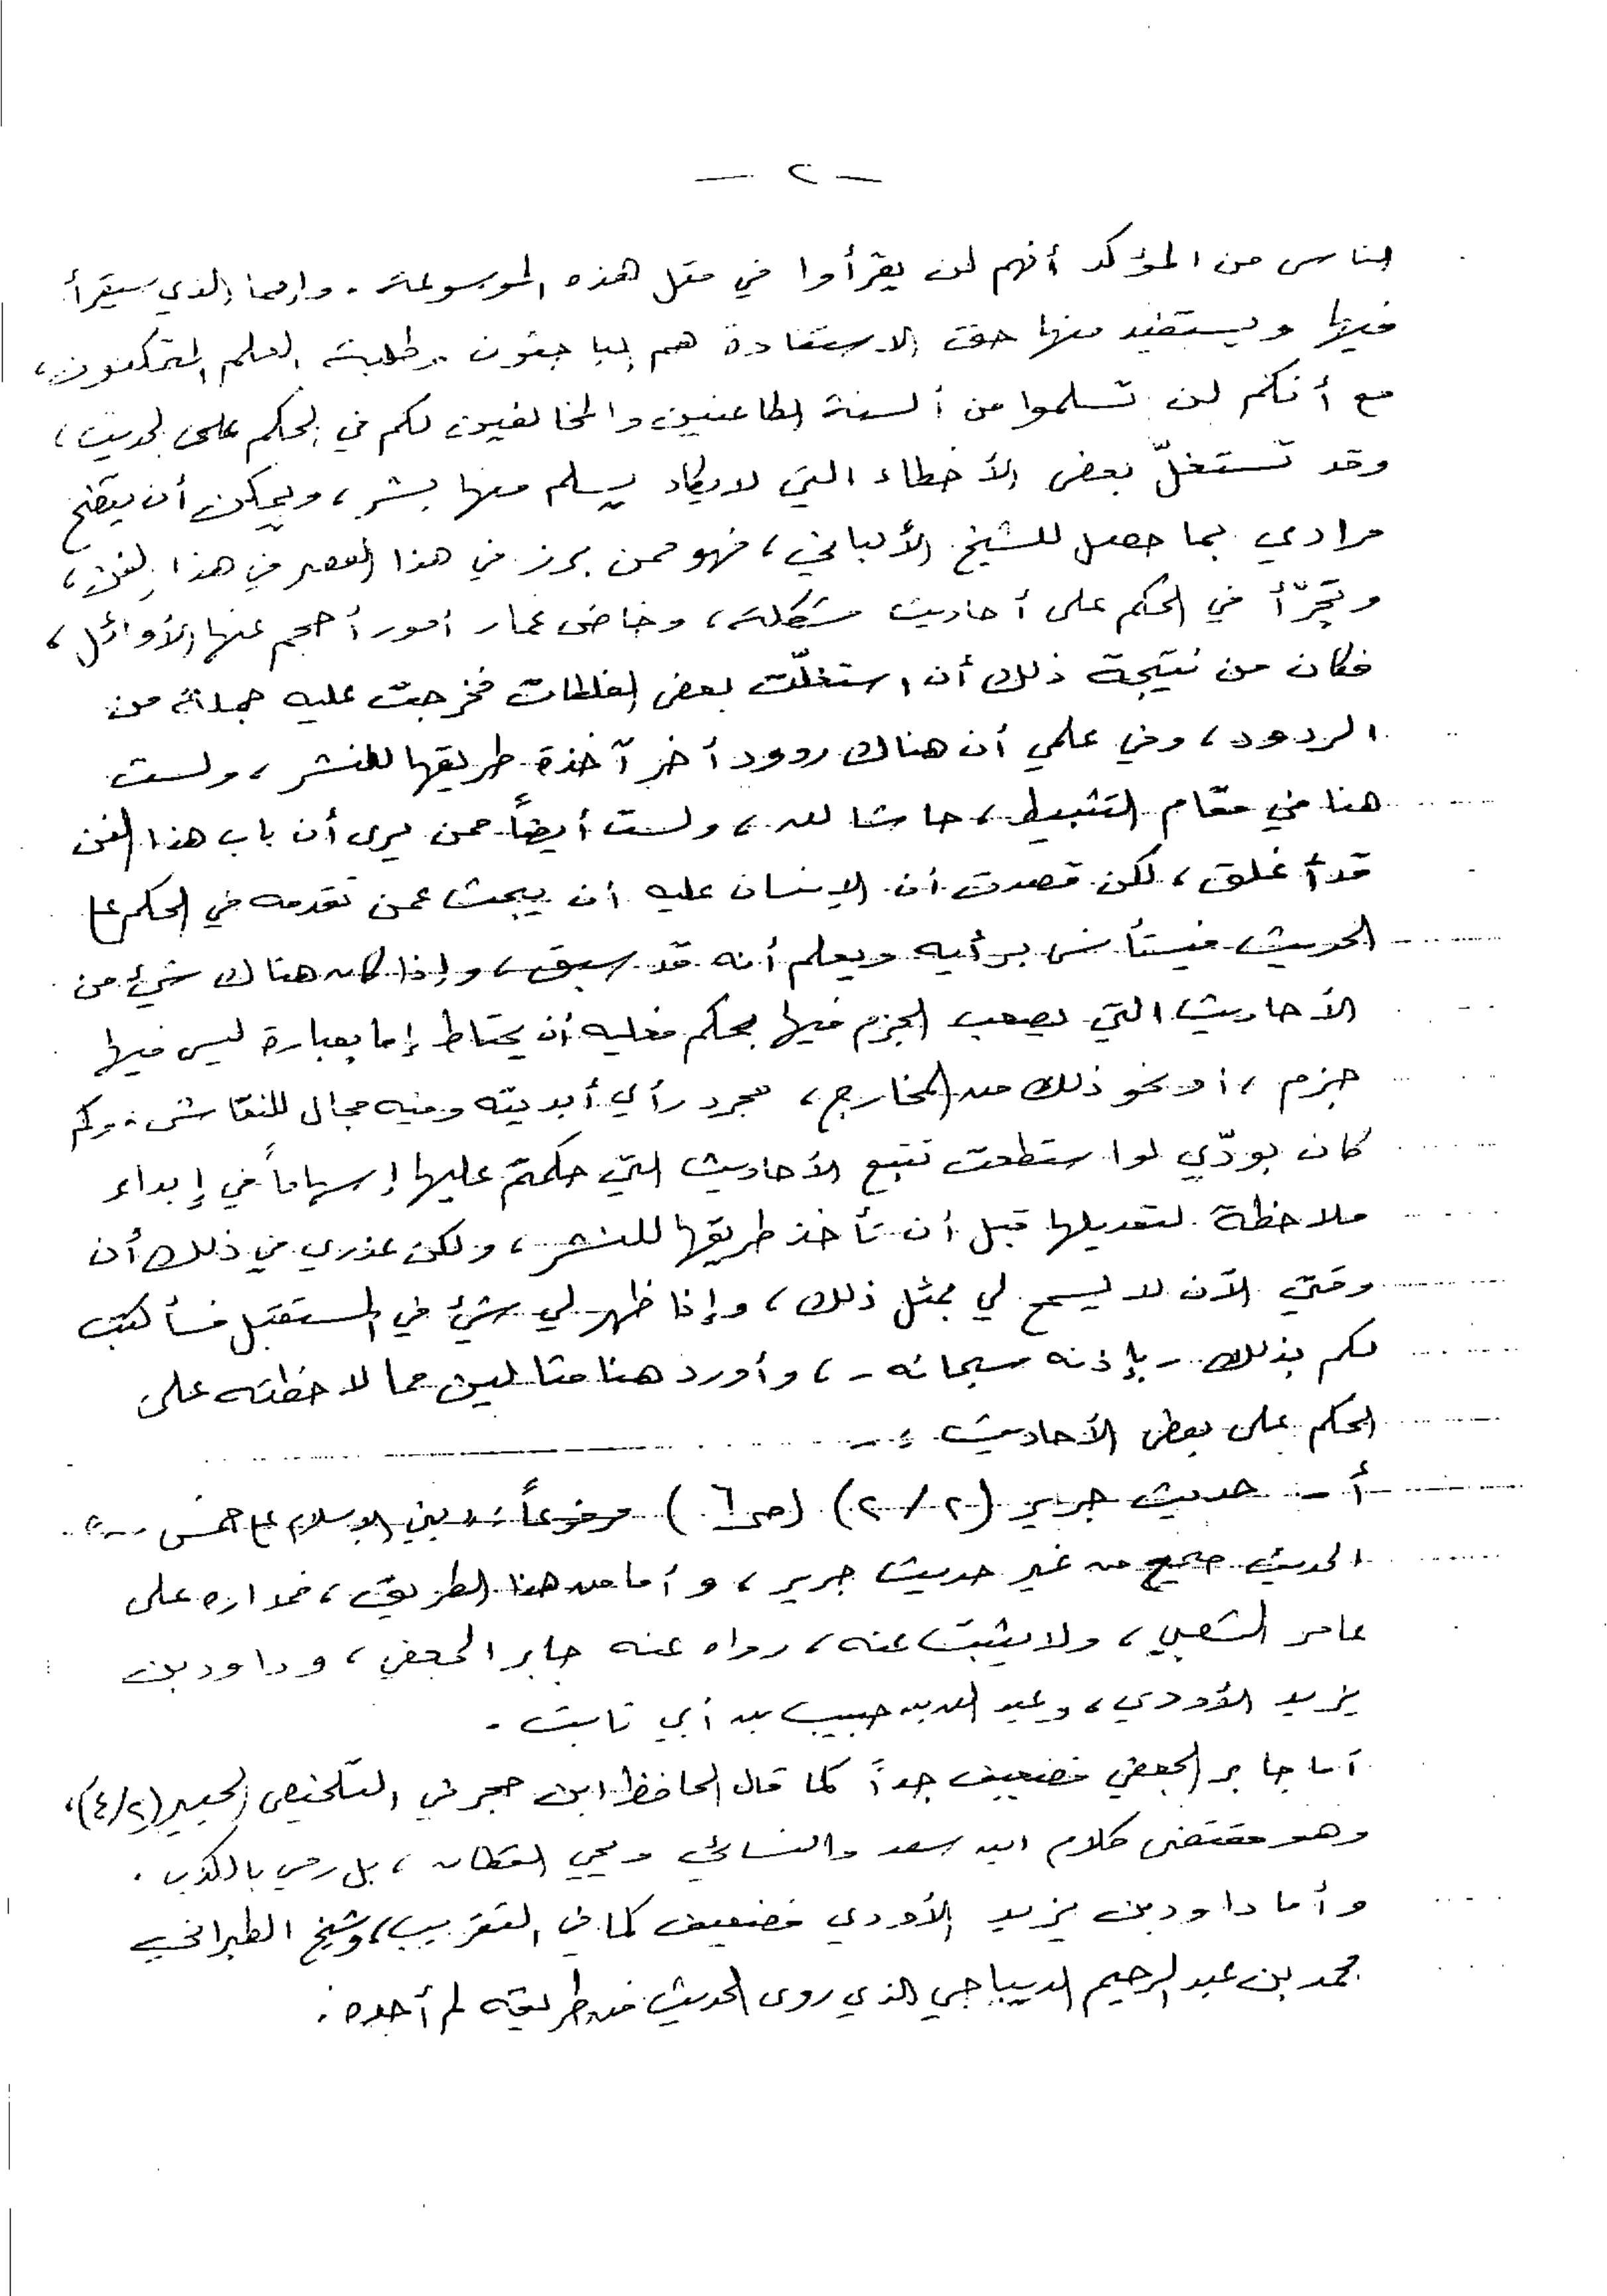 — ٢ —
الناس من المؤكد أنهم لن يقرأوا في مثل هذه الموسوعة . وإنما الذي سيقرأ
فيها ويستفيد منها حق الاستفادة هم الباحثون وطلبة العلم المتمكنون ،
مع أنكم لن تسلموا من ألسنة الطاعنين والمخالفين لكم في الحكم على الحديث ،
وقد تستغلّ بعض الأخطاء التي لا يكاد يسلم منها بشر ، ويمكن أن يتضح
مرادي بما حصل للشيخ الألباني ، فهو ممن برز في هذا العصر في هذا الفن ،
وتجرّأ في الحكم على أحاديث مشكلة ، وخاض غمار أمور أحجم عنها الأوائل ،
فكان من نتيجة ذلك أن استغلّت بعض الغلطات فخرجت عليه جملة من
الردود ، وفي علمي أن هناك ردود أخر آخذة طريقها للنشر ، ولست
هنا في مقام التثبيط ، حاشا لله ، ولست أيضاً ممن يرى أن باب هذا الفن
قد أغلق ، لكن قصدت أن الإنسان عليه أن يبحث عمن تقدمه في الحكم على
الحديث فيستأنس برأيه ويعلم أنه قد سبق ، وإذا كان هناك شيء من
الأحاديث التي يصعب الجزم فيها بحكم فعليه أن يحتاط إما بعبارة ليس فيها
جزم ، أو نحو ذلك من المخارج ، مجرد رأي أبديته وفيه مجال للنقاش . وكم
كان بودّي لو استطعت تتبع الأحاديث التي حكمتم عليها إسهاماً في إبداء
ملاحظة لتعديلها قبل أن تأخذ طريقها للنشر ، ولكن عذري في ذلك أن
وقتي الآن لا يسمح لي بمثل ذلك ، وإذا ظهر لي شيء في المستقبل فسأكتب
لكم بذلك - بإذنه سبحانه - ، وأورد هنا مثالين مما لاحظته على
الحكم على بعض الأحاديث :-
أ - حديث جرير (٢/٢) (ص٦) مرفوعاً : « بني الإسلام على خمس ... »
الحديث صحيح من غير حديث جرير ، وأما من هذا الطريق ، فمداره على
عامر الشعبي ، ولا يثبت عنه ، رواه عنه جابر الجعفي ، وداود بن
يزيد الأودي ، وعبد الله بن حبيب بن أبي ثابت .
أما جابر الجعفي فضعيف جداً كما قال الحافظ ابن حجر في التلخيص الحبير (٤/٢) ،
وهو مقتضى كلام ابن سعد والنسائي ويحيي القطان ، بل رمي بالكذب .
وأما داود بن يزيد الأودي فضعيف كما في التقريب ، وشيخ الطبراني
محمد بن عبد الرحيم الديباجي الذي روى الحديث من طريقه لم أجده .